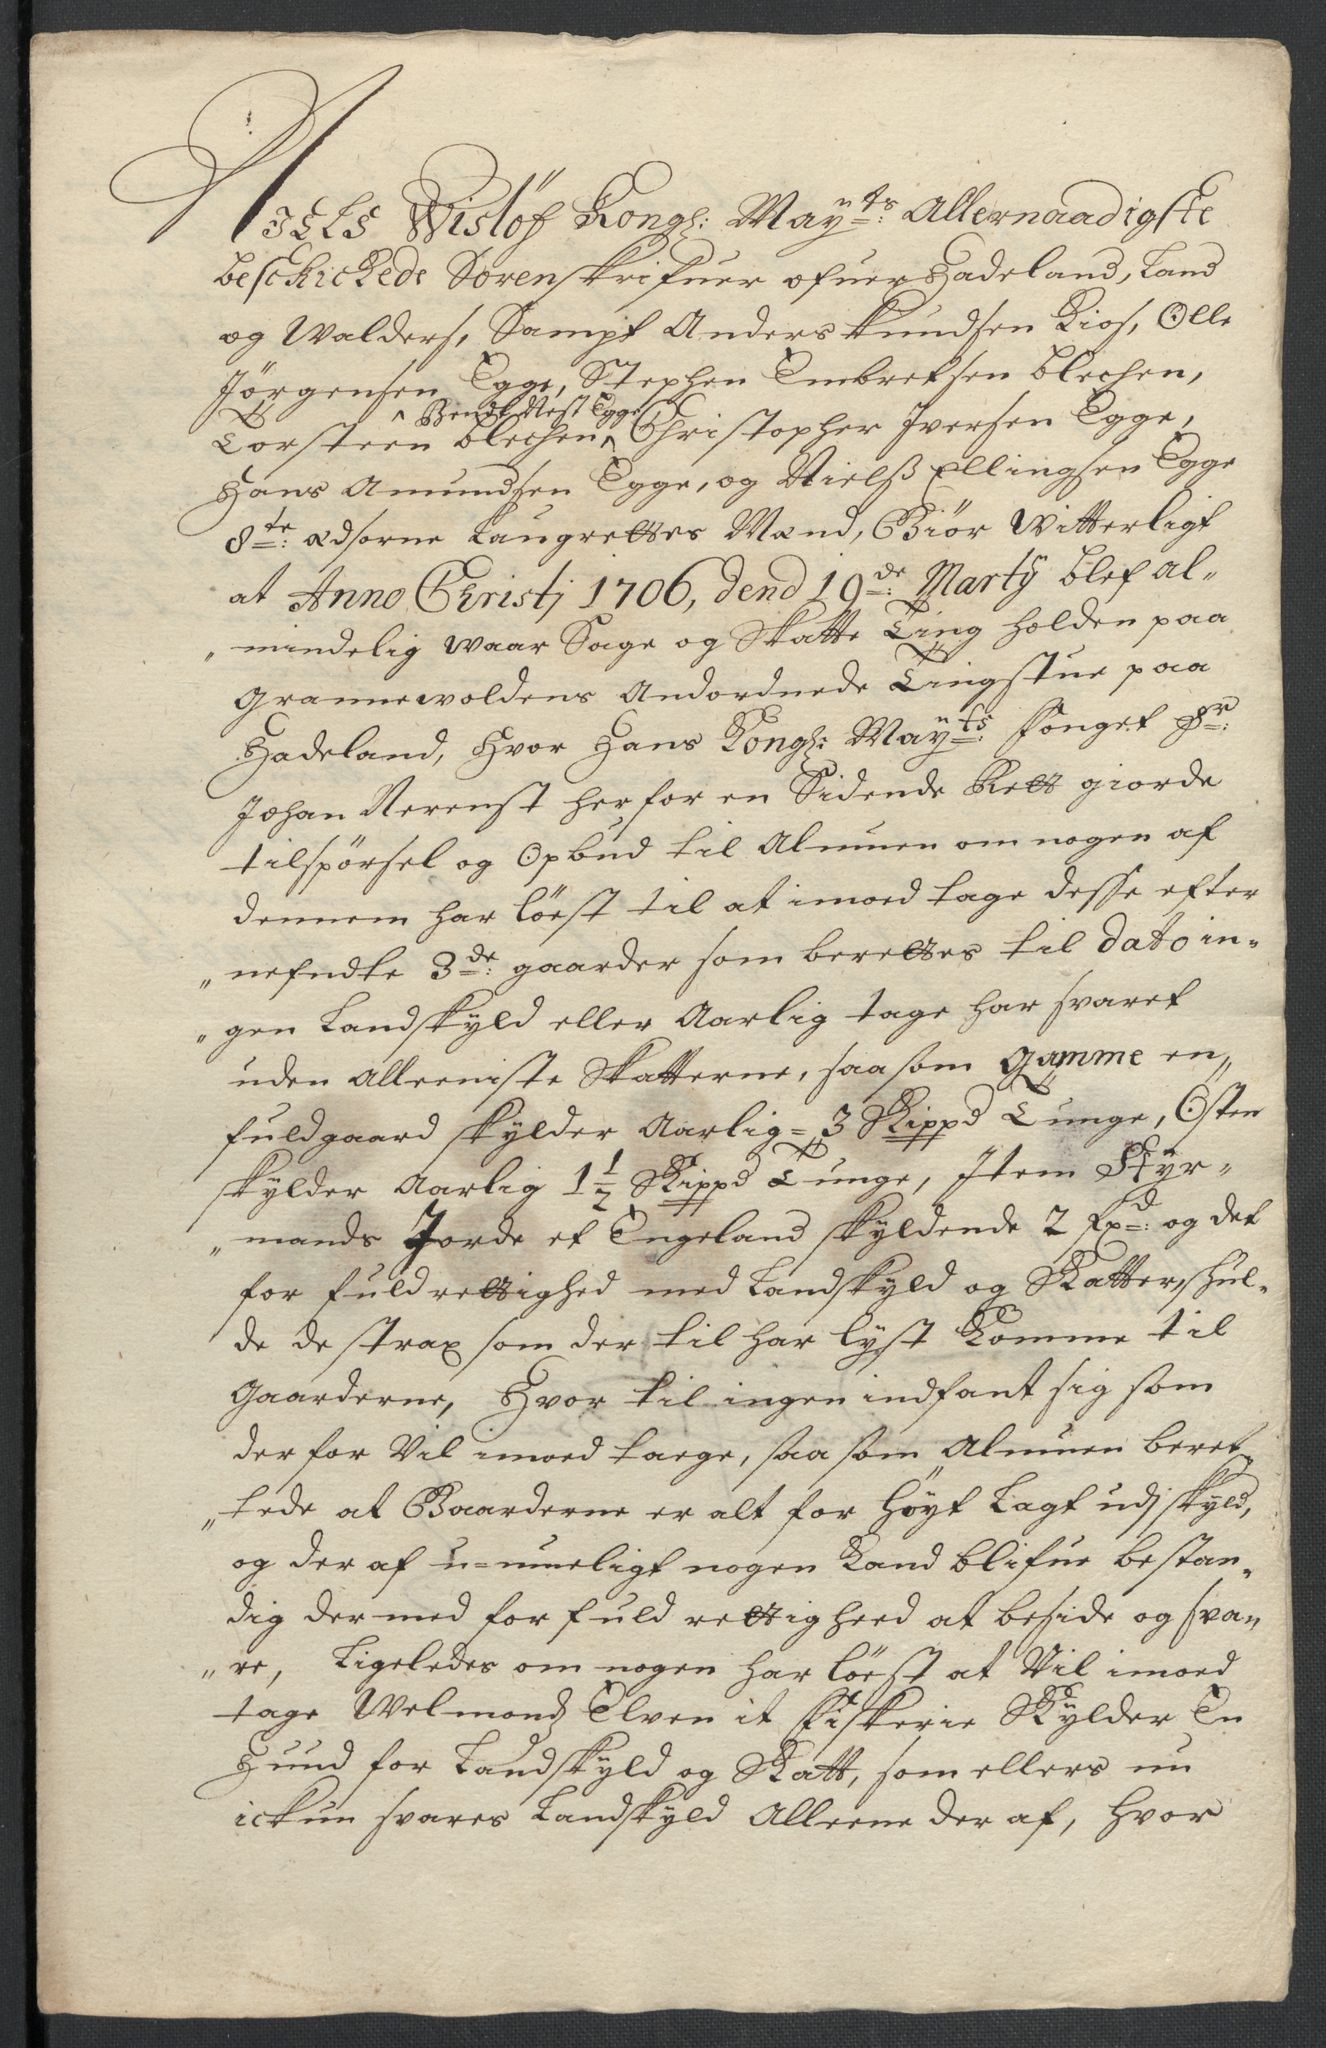 Niels Wislöf Kongl: May=ts: Allernaadigste
beschickede Sorenskrifuer ofuer Hadeland, Land
og Walders, Sampt Anders Knudsen Kios, Olle
Jörgensen Egge, Stephen Embretsen blechen,
Torsteen blechen, ^ Bendt Nest Egge ^ Christopher Jversen Egge,
Hans Amundsen Egge, og Nielß Ellingsen Egge
8te: Edsorne Laugrettes Mænd, Giör Witterligt
at Anno Christj 1706, dend 19de: Martÿ blef al„
„mindelig waar Sage og Skatte Ting holden paa
Grannewoldens Andordnede Tingstue paa
Hadeland, Hvor Hans Kongl: Mayts: fouget Sr:
Johan Nerenst her for en Sidende Rett giorde
tilspörsel og Opbud til Almuen om nogen af
dennem har löest til at imoed tage desse efter
„nefndte 3de: gaarder som berettes til dato in„
„gen Landskyld eller Aarlig tage har svaret
uden Alleeniste Skatterne, saa som Gamme en„
fuldgaard skylder Aarlig = 3 Skippd Tunge, Östen
skylder Aarlig 1½ Skippd Tunge, Jtem Styr„
„mands Jorde et Engeland skyldende 2 fxd: og det
for fuld rettighed med Landskyld og Skatter, skul„
de de strax som der til har lyst Komme til
Gaarderne, Hvor til ingen indfant sig som
der for Vil imoed taege, saa som Almuen beret„
„tede at Gaarderne er alt for höyt Lagt udj skyld,
og der af u=mueligt nogen Kand blifue bestan„
dig der med for fuld rettigheed at beside og sva„
„re, Ligeledes om nogen har löest at Vil imoed
tage Welmond Elven it fiskerie Skylder En
Hund for Landskyld og Skatt, som ellers nu
ickun svares Landskyld Alleene der af, hvor